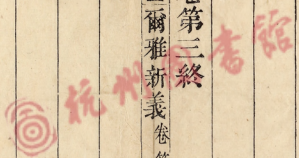 第三終
爾雅新義卷
杭州圖書館